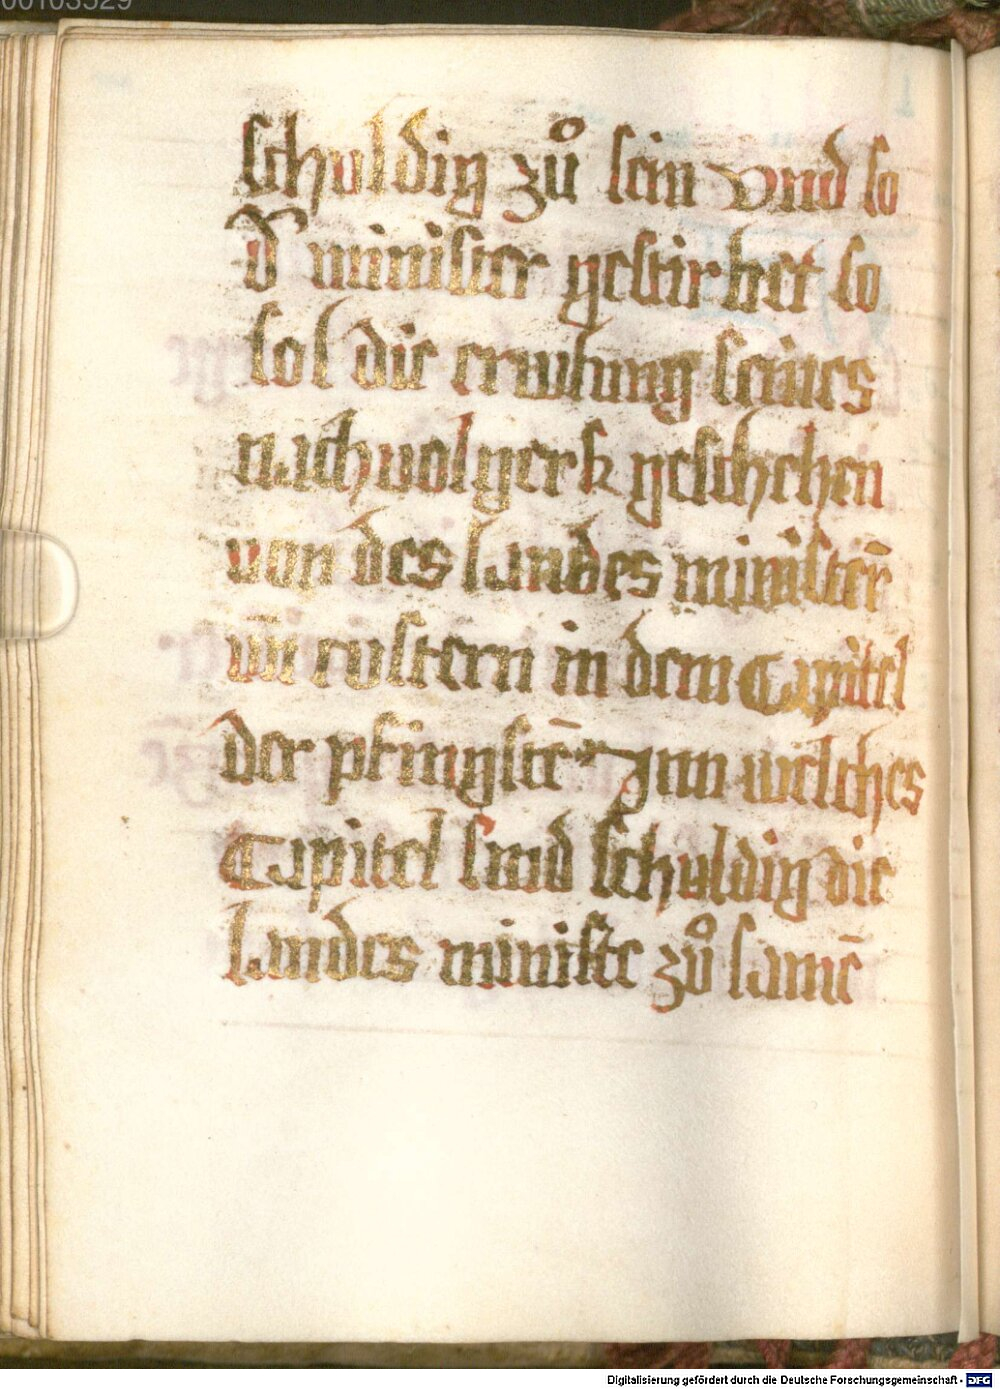 00103529
schuldig zuͦ sein vnd so
dˀ minister gestirbet so
sol die erwelung seines
nachuolgers geschehen
von des landes ministerñ
vñ custern in dem Capitel
der pfingstē Inn welches
Capitel sind schuldig die
landes ministe zuͦ samē
Digitalisierung gefördert durch die Deutsche Forschungsgemeinschaft - DFG